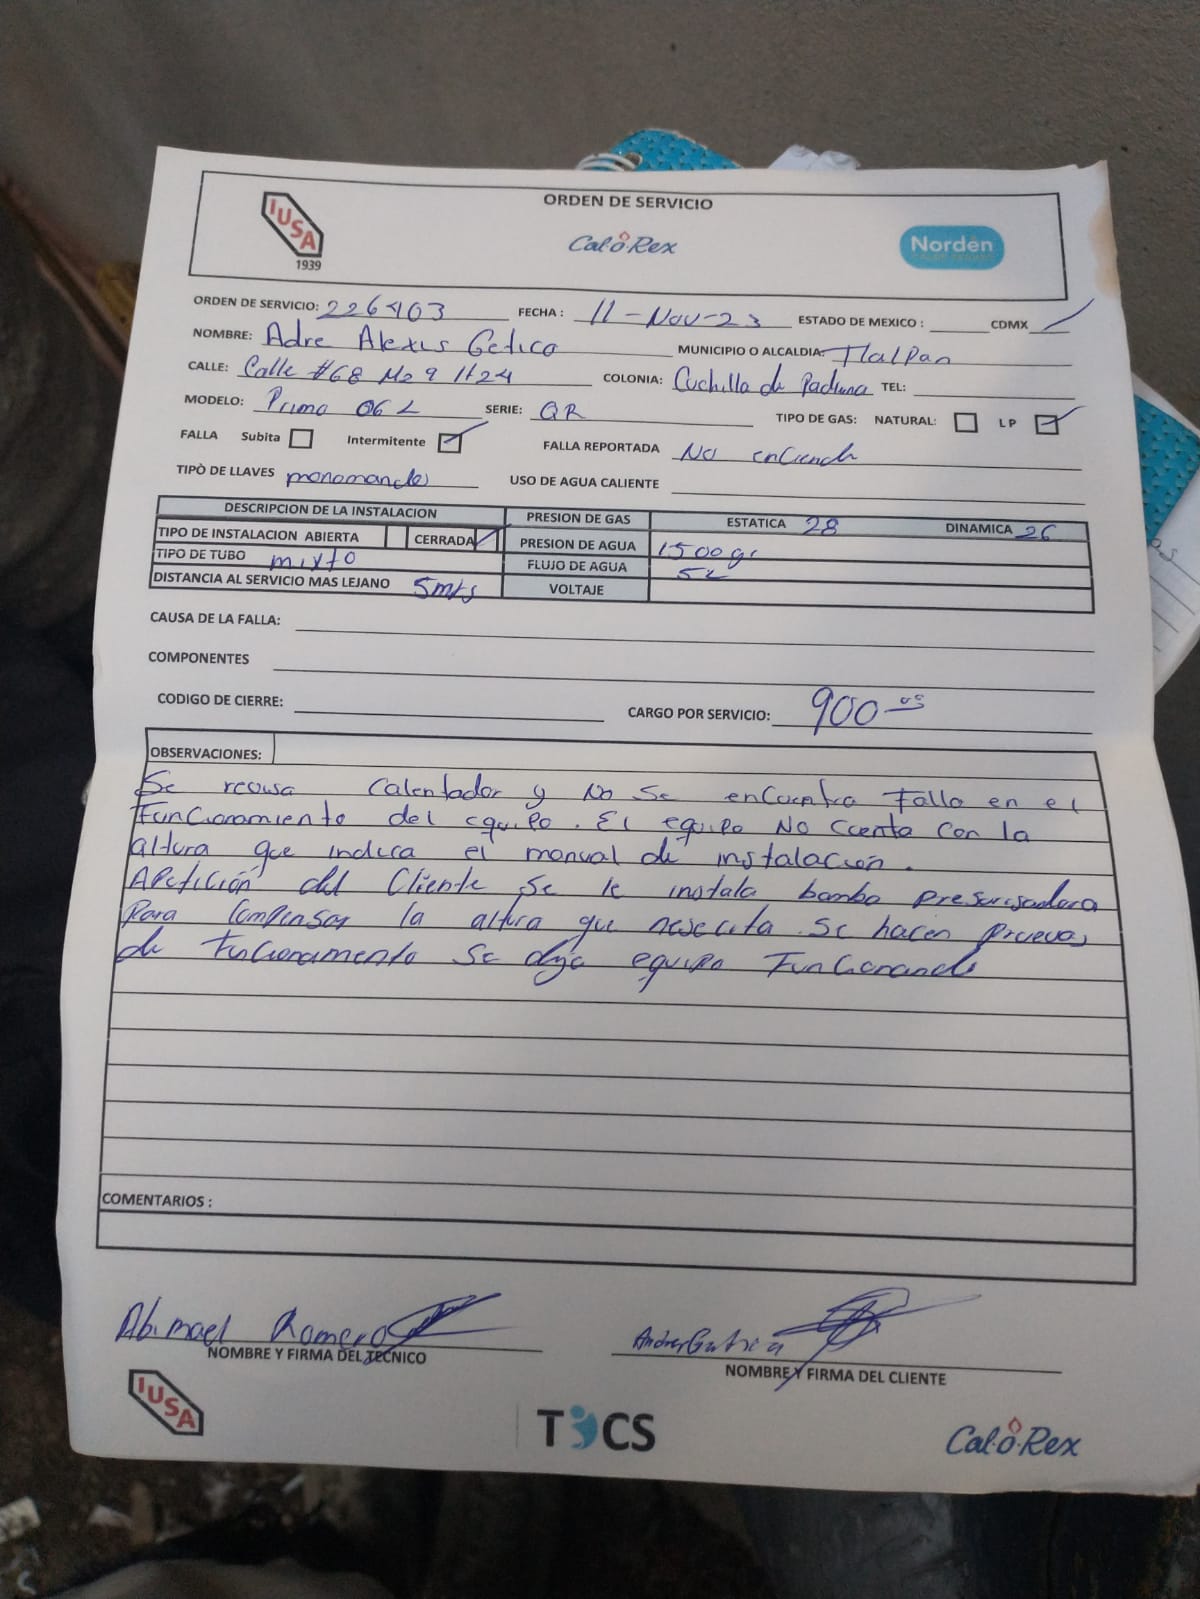 ORDEN DE SERVICIO
IUSA
1939
Cal-o-Rex
Norden
ORDEN DE SERVICIO: 226403 FECHA: 11-Nov-23 ESTADO DE MEXICO: CDMX
NOMBRE: Adre Alexis MUNICIPIO O ALCALDIA: Tlalpan
CALLE: Calle #68 Mz 9 lt24 COLONIA: Cuchilla de Padierna TEL:
MODELO: Primo 06 L SERIE: QR TIPO DE GAS: NATURAL: LP
FALLA Subita Intermitente FALLA REPORTADA No enciende
TIPÒ DE LLAVES monomandos USO DE AGUA CALIENTE
DESCRIPCION DE LA INSTALACION PRESION DE GAS ESTATICA 28 DINAMICA 26
TIPO DE INSTALACION ABIERTA CERRADA PRESION DE AGUA 1500gr
TIPO DE TUBO mixto FLUJO DE AGUA 5L
DISTANCIA AL SERVICIO MAS LEJANO 5mts VOLTAJE
CAUSA DE LA FALLA:
COMPONENTES
CODIGO DE CIERRE: CARGO POR SERVICIO: 900
OBSERVACIONES:
Se calentador y No Se encuentra Falla en el
Funcionamiento del equipo. El equipo No cuenta con la
altura que indica el manual de instalación.
Apetición del Cliente Se le instala bomba presurisadora
Para Compensar la altura que nesecita. Se hacen pruevas
de Funcionamento Se deja equipo Funcionando
COMENTARIOS :
Abimael Romero
NOMBRE Y FIRMA DEL TECNICO
NOMBRE Y FIRMA DEL CLIENTE
IUSA
TICS
Cal-o-Rex